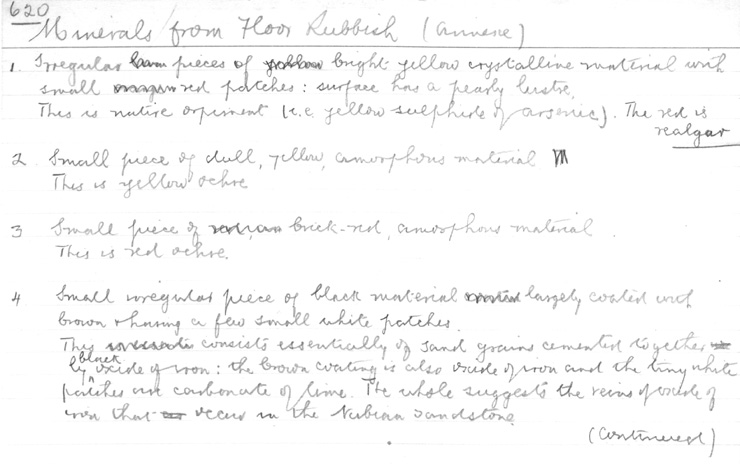 620
Minerals from Floor Rubbish (Annexe)
1 Irregular pieces of yellow bright yellow crystalline material with
small red patches: surface has a pearly lustre.
This is native orpiment (i.e. yellow sulphide of arsenic). The red is
realgar
2 Small piece of dull, yellow, amorphous material
This is yellow ochre
3 Small piece of brick-red, amorphous material.
This is red ochre.
4 Small irregular piece of black material largely coated with
brown & having a few small white patches.
This consists essentially of sand grains cemented together
black
by oxide of iron: the brown coating is also oxide of iron and the tiny white
patches are carbonate of lime. The whole suggests the veins of oxide of
iron that occur in the Nubian sandstone.
(Continued)